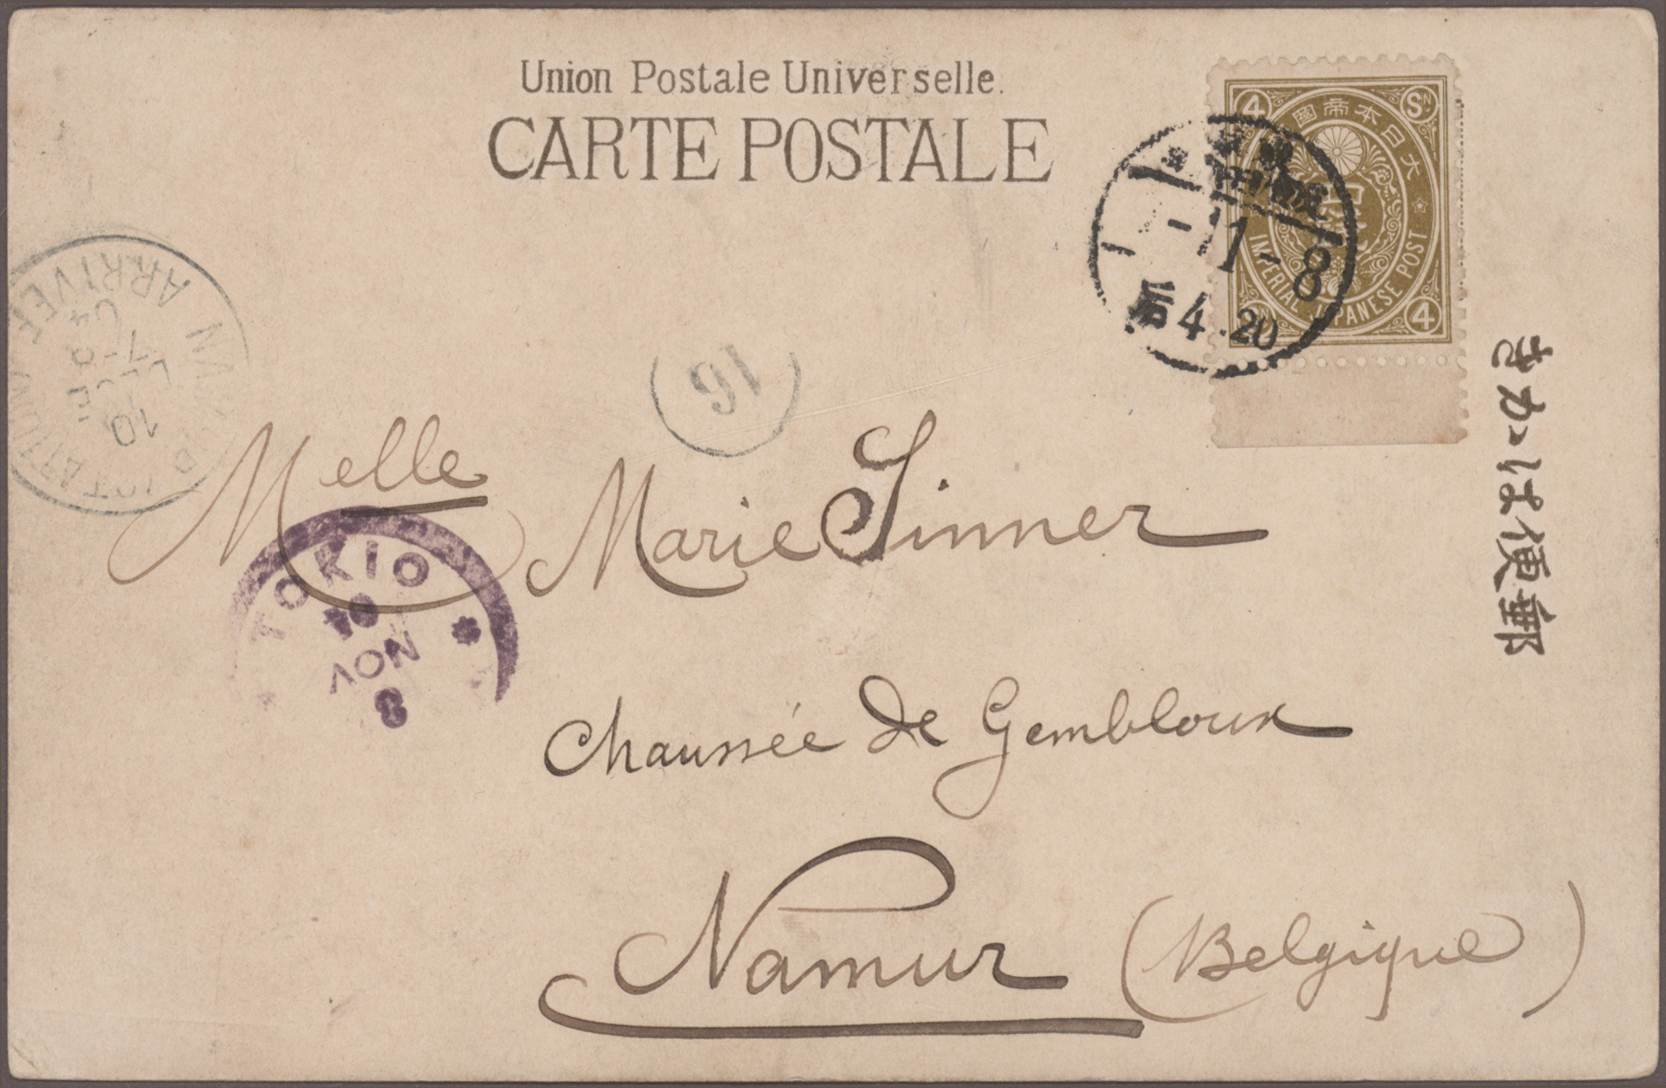 Union Postale Universelle.
CARTE POSTALE
4 SN
大日本帝國
IMPERIAL JAPANESE POST
4
11-8
后4.20
きかは便郵
16
ARRIVEE
04
7-8
DECE
10
TOKIO
04
NOV
8
Melle Marie Sinner
Chaussée de Gembloux
Namur (Belgique)